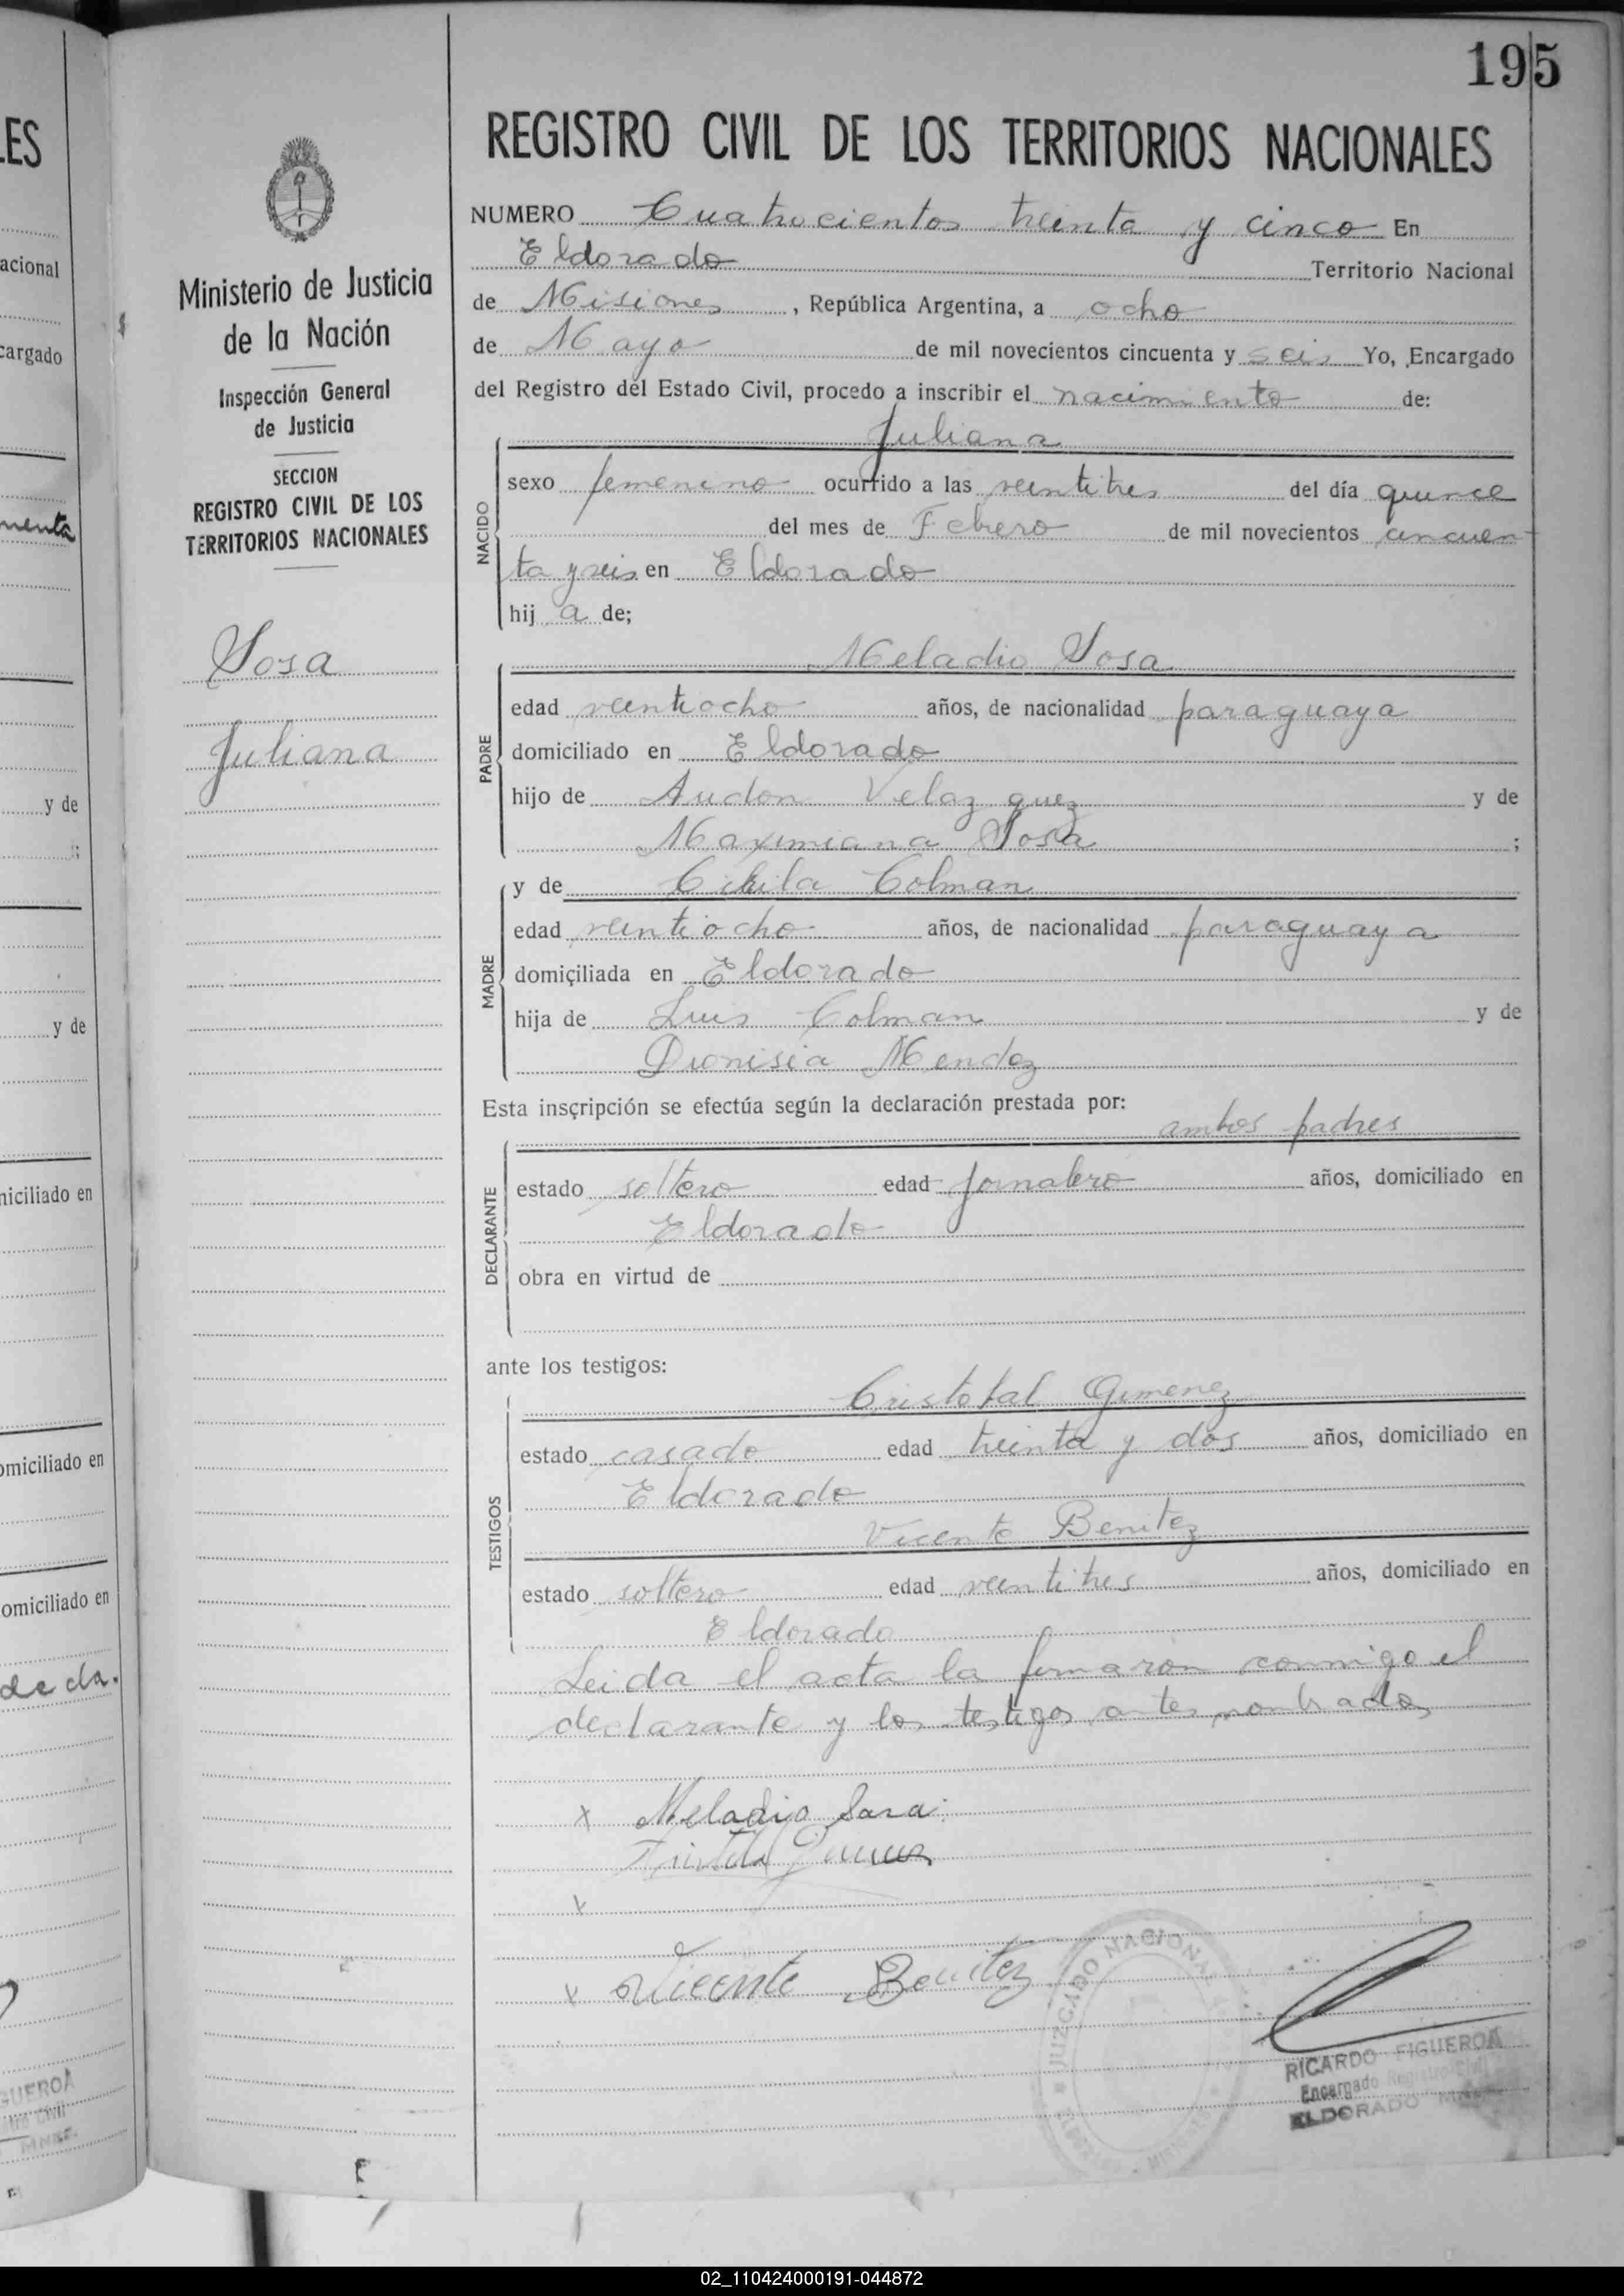 195
LES
REGISTRO CIVIL DE LOS TERRITORIOS NACIONALES
Ministerio de Justicia
de la Nación
Inspección General
de Justicia
SECCION
REGISTRO CIVIL DE LOS
TERRITORIOS NACIONALES
Sosa
Juliana
acional
cargado
menta
y de
;
y de
niciliado en
omiciliado en
omiciliado en
NUMERO Cuatrocientos treinta y cinco En
Eldorado Territorio Nacional
de Misiones, República Argentina, a ocho
de Mayo de mil novecientos cincuenta y seis Yo, Encargado
del Registro del Estado Civil, procedo a inscribir el nacimiento de:
NACIDO
Juliana
sexo femenino ocurrido a las veintitres del día quince
del mes de Febrero de mil novecientos cincuen
ta y seis en Eldorado
hij a de;
PADRE
Meladio Sosa
edad veintiocho años, de nacionalidad paraguaya
domiciliado en Eldorado
hijo de Audon Velazquez y de
Maximiana Sosa ;
MADRE
y de Colman
edad veintiocho años, de nacionalidad paraguaya
domiciliada en Eldorado
hija de Luis Colman y de
Dionisia Mendez
Esta inscripción se efectúa según la declaración prestada por:
DECLARANTE
ambos padres
estado soltero edad jornalero años, domiciliado en
Eldorado
obra en virtud de
ante los testigos:
TESTIGOS
Cristobal Gimenez
estado casado edad treinta y dos años, domiciliado en
Eldorado
Vicente Benitez
estado soltero edad veintitres años, domiciliado en
Eldorado
Leida el acta la firmaron conmigo el
declarante y los testigos antes nombrados
x Meladio Sosa
x Vicente Benitez
JUZGADO NACIONAL
RICARDO FIGUEROA
Encargado Registro Civil
ELDORADO
02_110424000191-044872